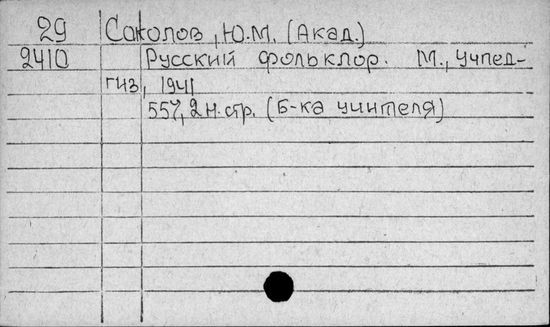 29 Соколов, Ю.М. (Акад.)
2410 Русский фольклор. М., Учпед-
гиз, 1941
557, 2 н. стр. (Б-ка учителя)